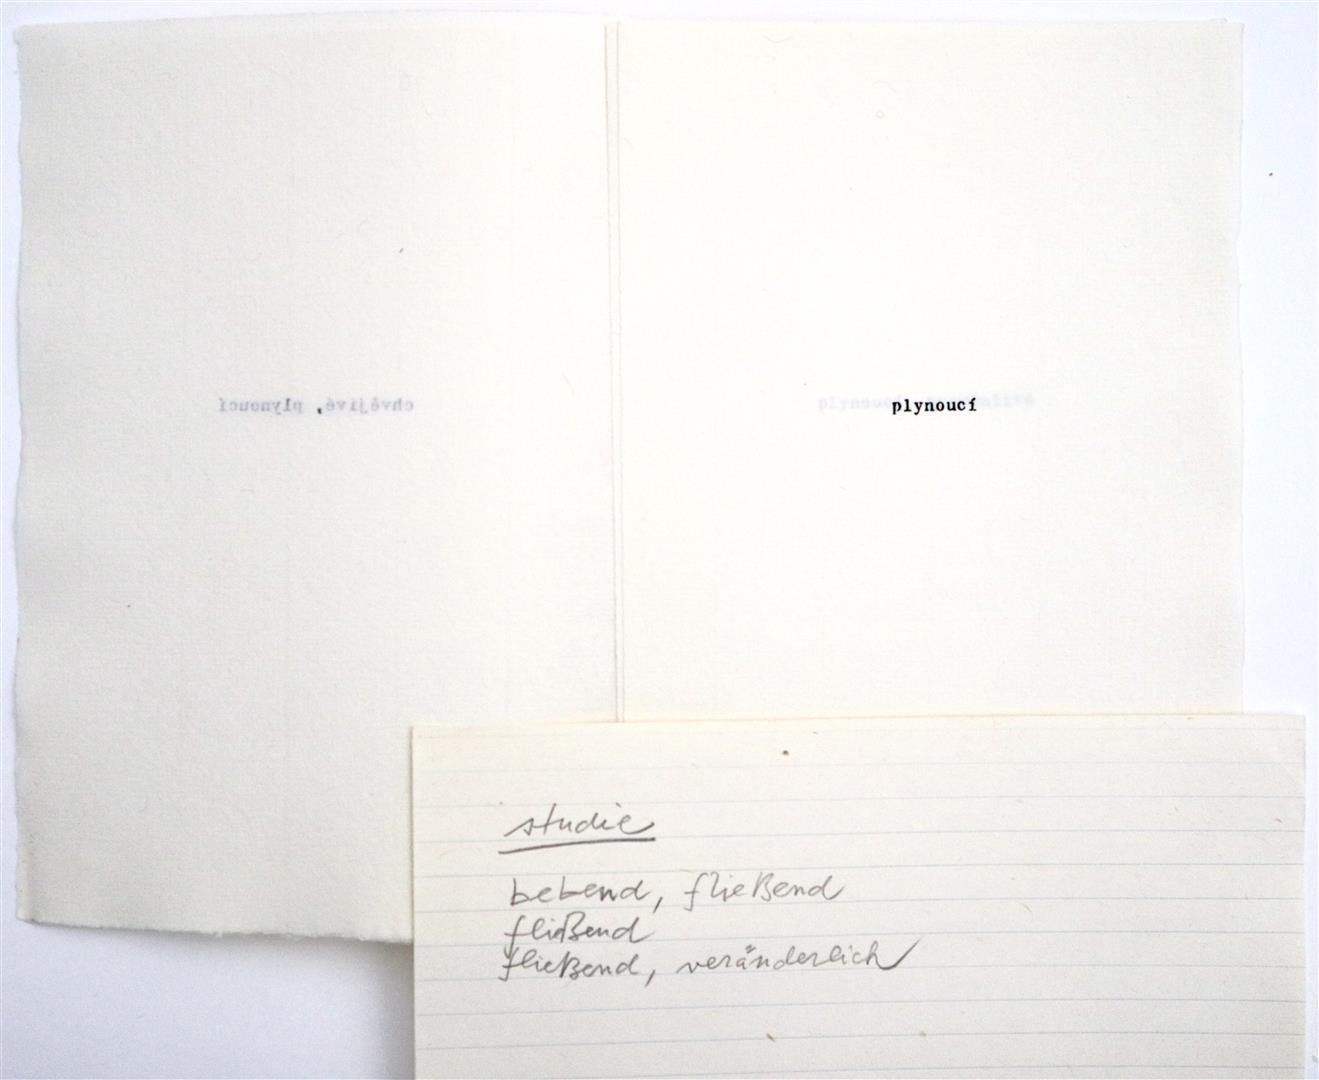 chvějivé, plynoucí
plynoucí
studie
bebend, fließend
fließend
fließend, veränderlich